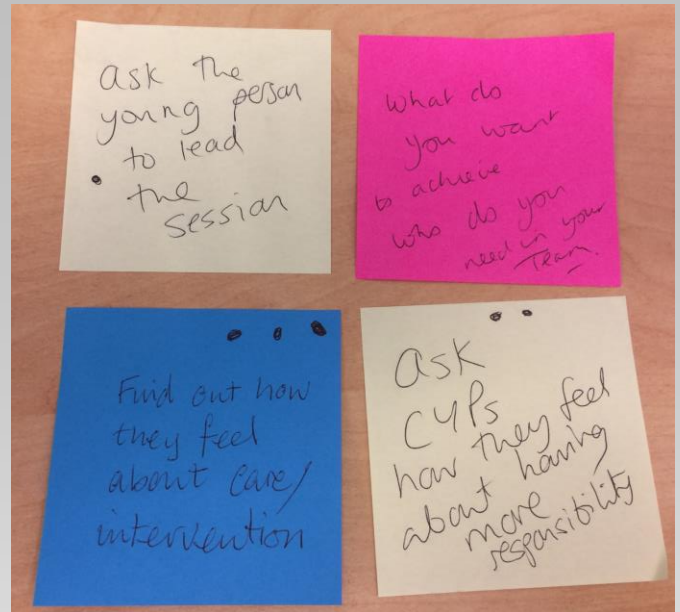 ask the
young person
to lead
the
session
What do
you want
to achieve
who do you
need in your
Team.
Find out how
they feel
about care/
intervention
Ask
CYPs
how they feel
about having
more
responsibility